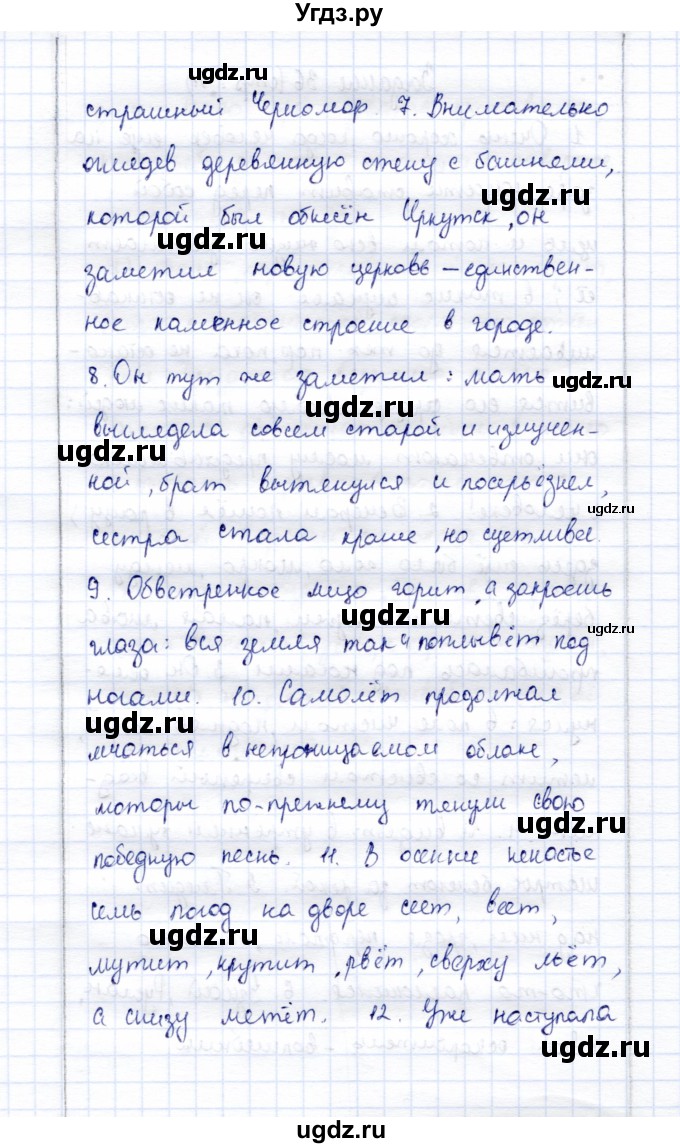 Угдз.ру
ugdz.ru
страшный Черномор. 7. Внимательно
оглядев деревянную стену с башнями,
ugdz.ru
которой был обнесён Иркутск, он
ugdz.ru
заметил новую церковь – единствен-
ное каменное строение в городе.
8. Он тут же заметил: мать
ugdz.ru
ugdz.ru
выглядела совсем старой и измучен-
ugdz.ru
ной, брат вытянулся и посерьёзнел,
ugdz.ru
сестра стала краше, но суетливее.
9. Обветренное лицо горит, а закроешь
ugdz.ru
глаза: вся земля так и поплывёт под
ugdz.ru
ногами. 10. Самолёт продолжал
ugdz.ru
мчаться в непроницаемом облаке,
моторы по-прежнему тянули свою
ugdz.ru
победную песнь. 11. В осеннее ненастье
семь погод на дворе сеет, веет,
ugdz.ru
мутит, крутит, рвёт, сверху льёт,
а снизу метёт. 12. Уже наступала
ugdz.ru
ugdz.ru